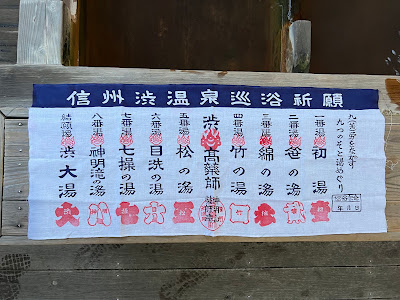 信州渋温泉巡浴祈願
九苦労をながす
九つのそと湯めぐり
年 月 日
一番湯 初湯
二番湯 笹の湯
三番湯 綿の湯
四番湯 竹の湯
渋 高薬師
五番湯 松の湯
六番湯 目洗の湯
七番湯 七操の湯
八番湯 神明滝の湯
結願湯 渋大湯